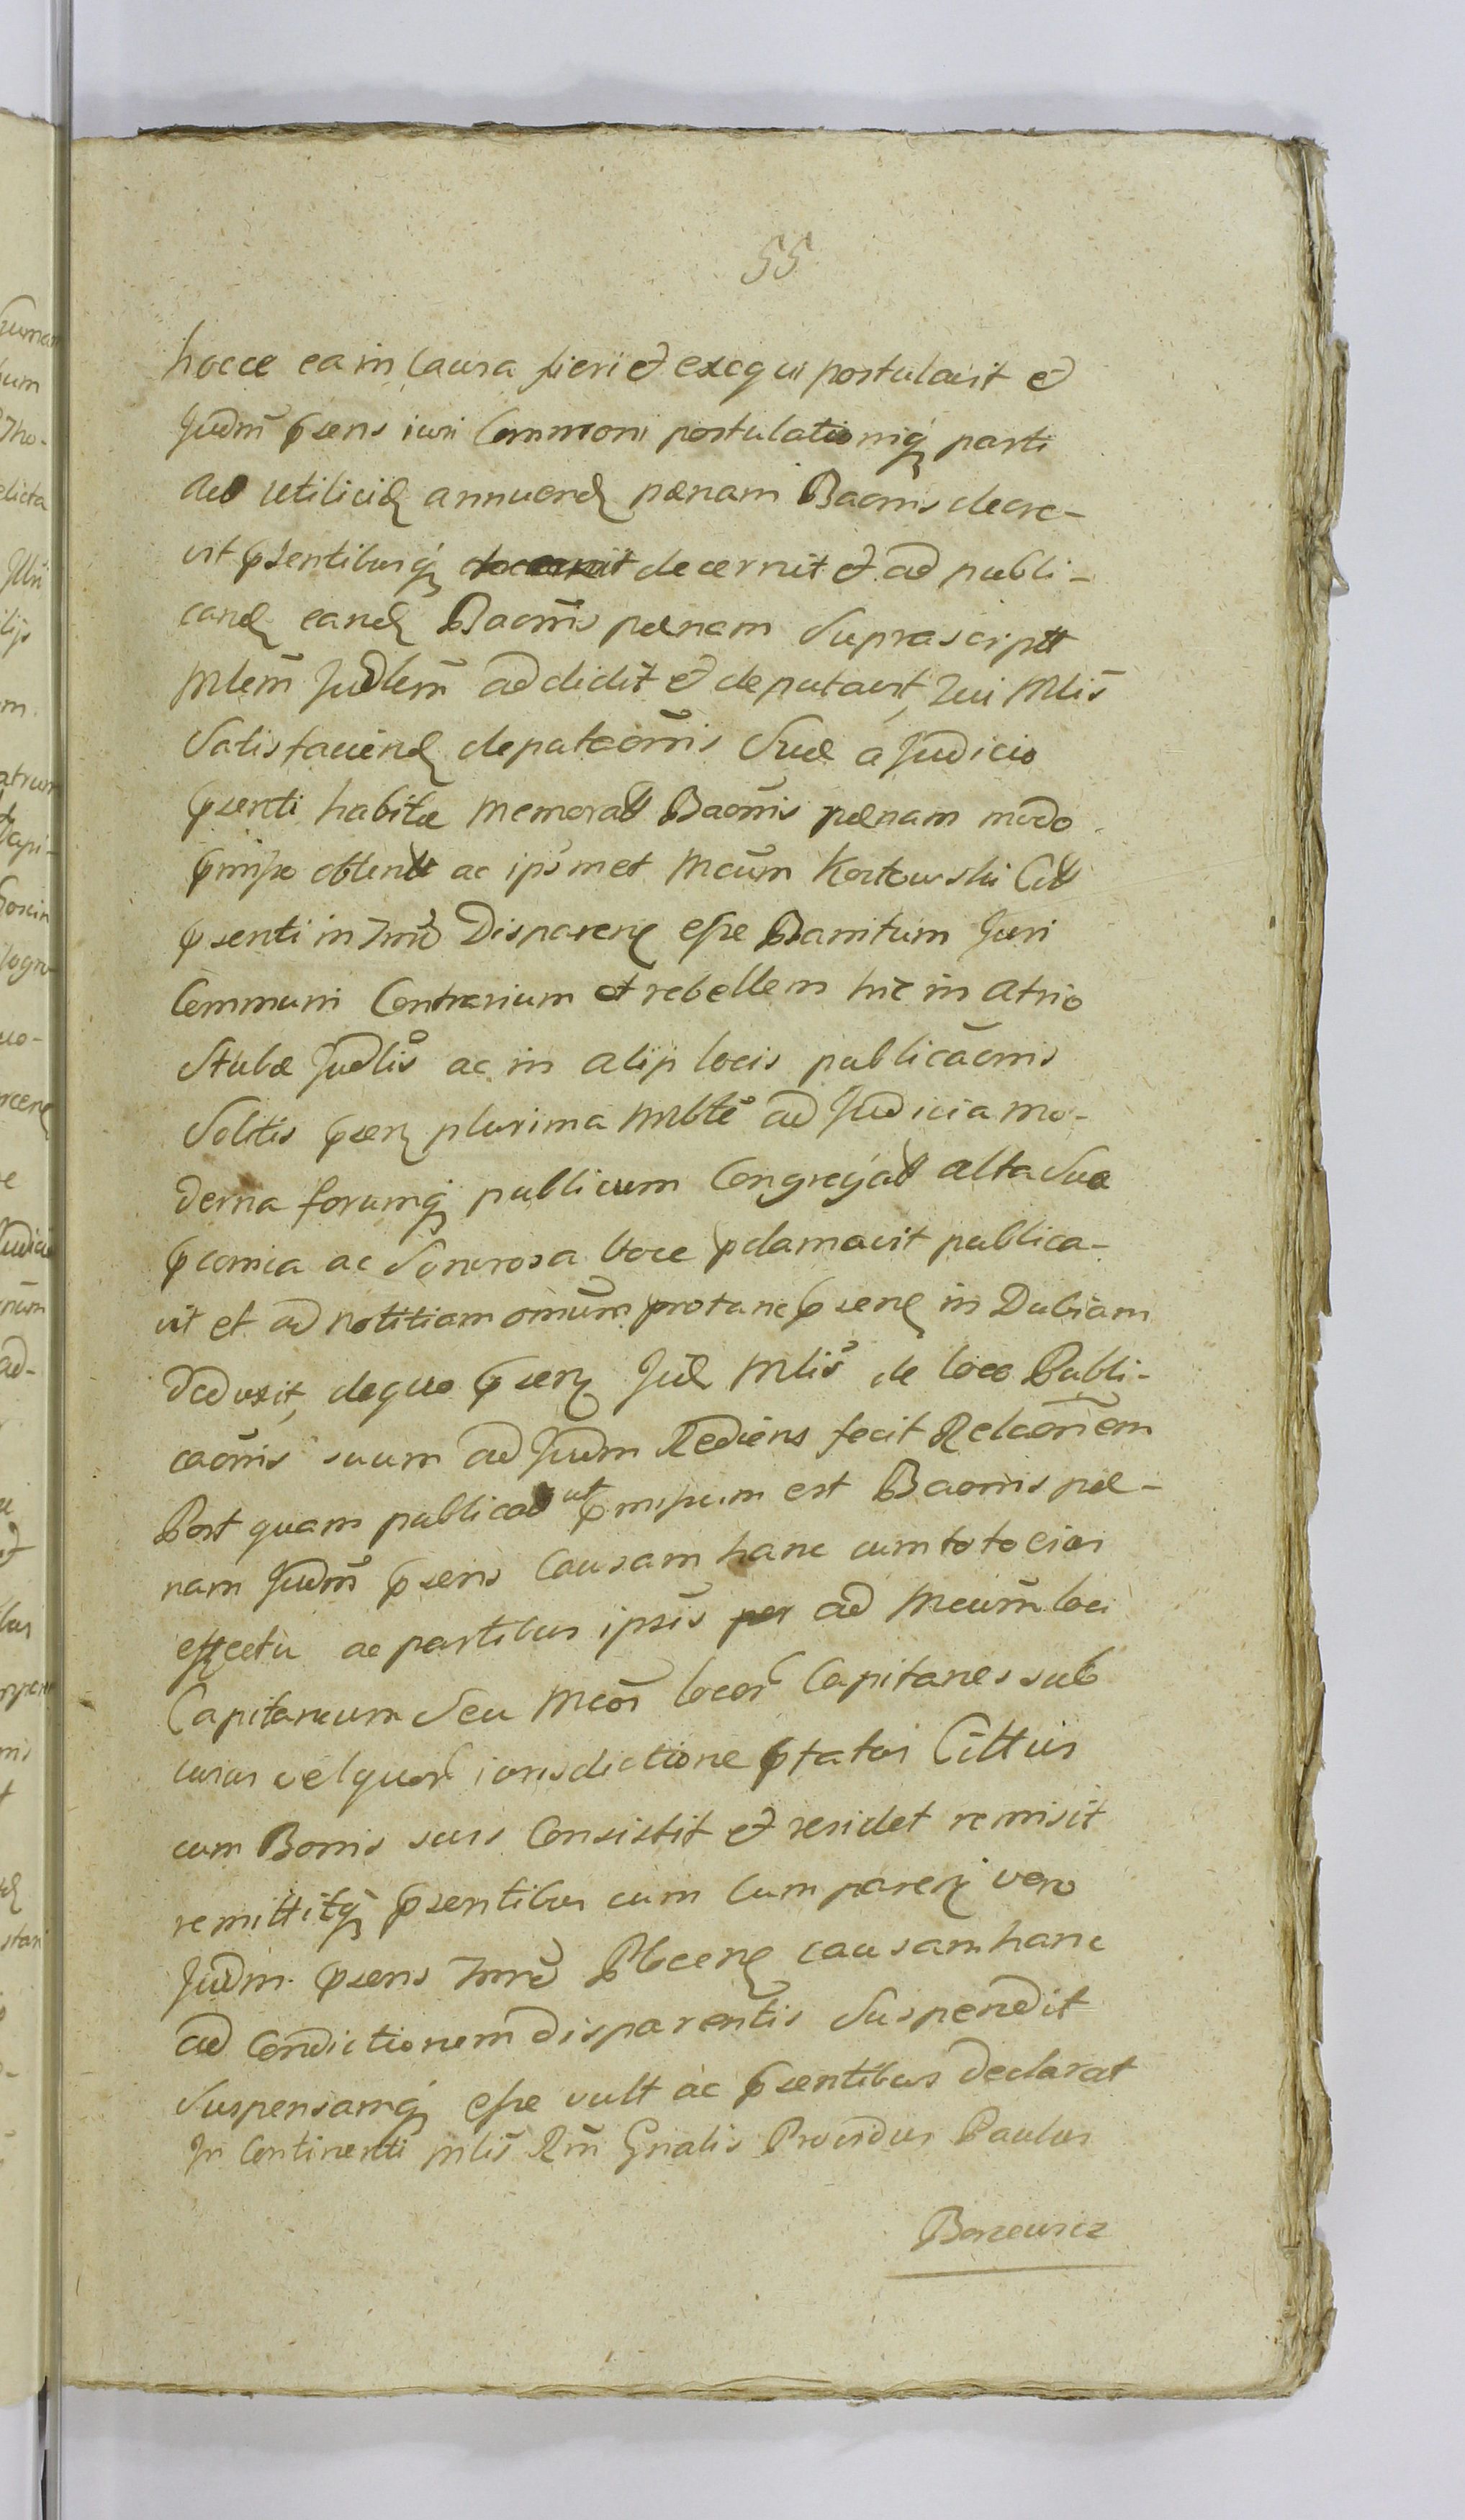 55
hocce ea in Causa fieri et exequi postulavit et
Judm̃ pñsens iuri Commoni postulationiq; parti
annuend pænam Baõnis decre-
vit pñsentibusq; decernit et ad publi-
cand eand Baõnis pænam Suprascriptt
Mlem̃ Judlem̃ addidit et deputavit, qui Mlis
Satisfaciend deputaõnis Suæ a Judicio
pñsenti habitæ memoratt Baõnis pænam modo
pmisso obtentt ac ipsmet Mcum̃ Kortowski Citt
pñsenti in Tmno Disparen esse Banitum Juri
Communi Contrarium et rebellem hic in atrio
Stubæ Judlis ac in alijs locis publicaõnis
Solitis pñsen plurima Nblte ad Judicia mo-
derna forumq; publicum Congregatt alta Sua
pconia ac Sonorosa Voce pclamavit publica-
vit et ad notitiam omnium protunc pñsen in Dubiam
deduxit, dequo pñsen Jud Mlis de loco Publi-
caõnis suum ad Judm Rediens fecit Relaõnem
Post quam publicatt ut pmissum est Baõnis pæ-
nam Judm̃ pñsens Causam hanc cum toto eius
effectu ac partibus ipsis per ad Mcum̃ loci
Capitaneum Seu Mcos locor Capitaneos sub
cuius vel quor iurisdictione pfatus Cittus
cum Bonis suis Consistit et residet remisit
remittitq; pñsentibus cum Comparen vero
Judm pñsens Tmno causam hanc
ad Condictionem disparentis Suspendit
Suspensamq; esse vult ac pñsentibus declarat
In Continenti Mlis Rm̃ Gnalis Providus Paulus
Borzewicz